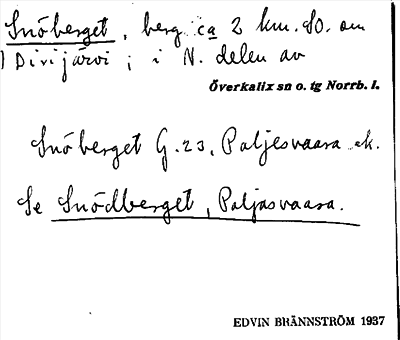 Snöberget, berg ca 2 km. SO. om
Dirijärvi i N. delen av
Överkalix sn o. tg Norrb. l.
Snöberget G.23, Paljesvaara ek.
Se Snödberget, Paljasvaara.
EDVIN BRÄNNSTRÖM 1937